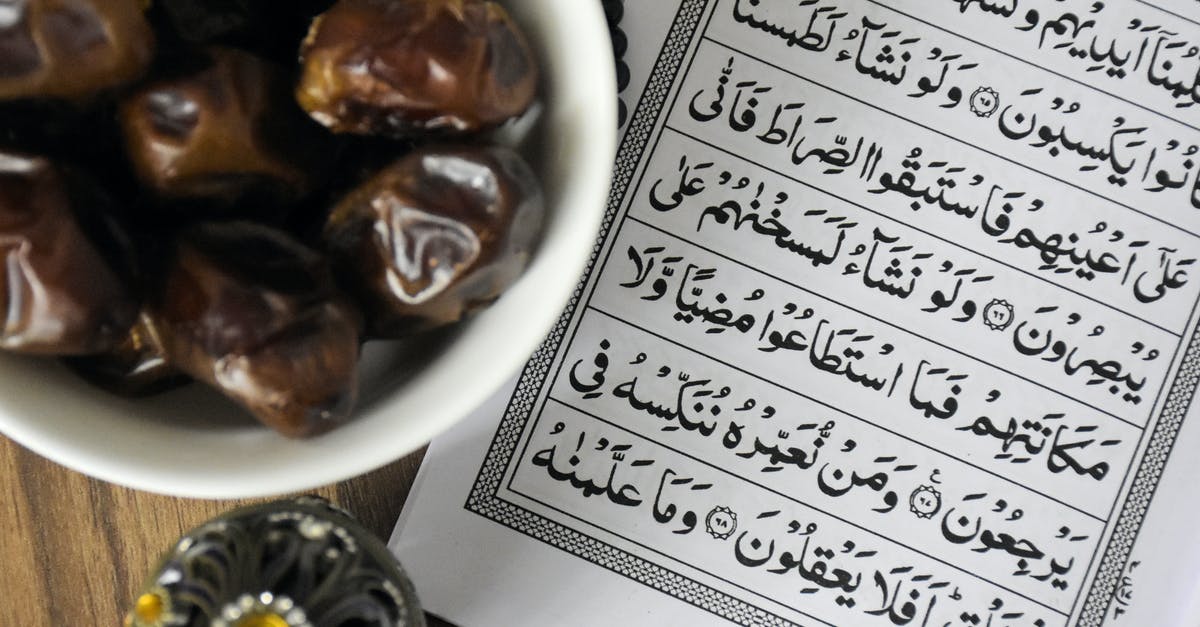 اَيْدِيْهِمْ
انُوْا يَكْسِبُوْنَ ۝٦٥ وَلَوْ نَشَآءُ لَطَمَسْنَا
عَلٰٓى اَعْيُنِهِمْ فَاسْتَبَقُوا الصِّرَاطَ فَاَنّٰى
يُبْصِرُوْنَ ۝٦٦ وَلَوْ نَشَآءُ لَمَسَخْنٰهُمْ عَلٰى
مَكَانَتِهِمْ فَمَا اسْتَطَاعُوْا مُضِيًّا وَّلَا
يَرْجِعُوْنَ ۝٦٧ وَمَنْ نُّعَمِّرْهُ نُنَكِّسْهُ فِى
اَفَلَا يَعْقِلُوْنَ ۝٦٨ وَمَا عَلَّمْنٰهُ